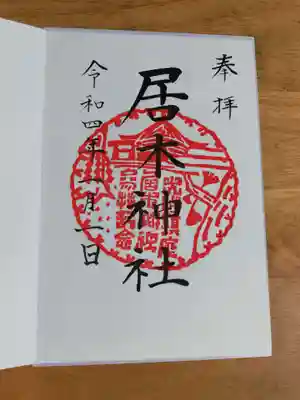 奉拝
居木神社
令和四年一月二日